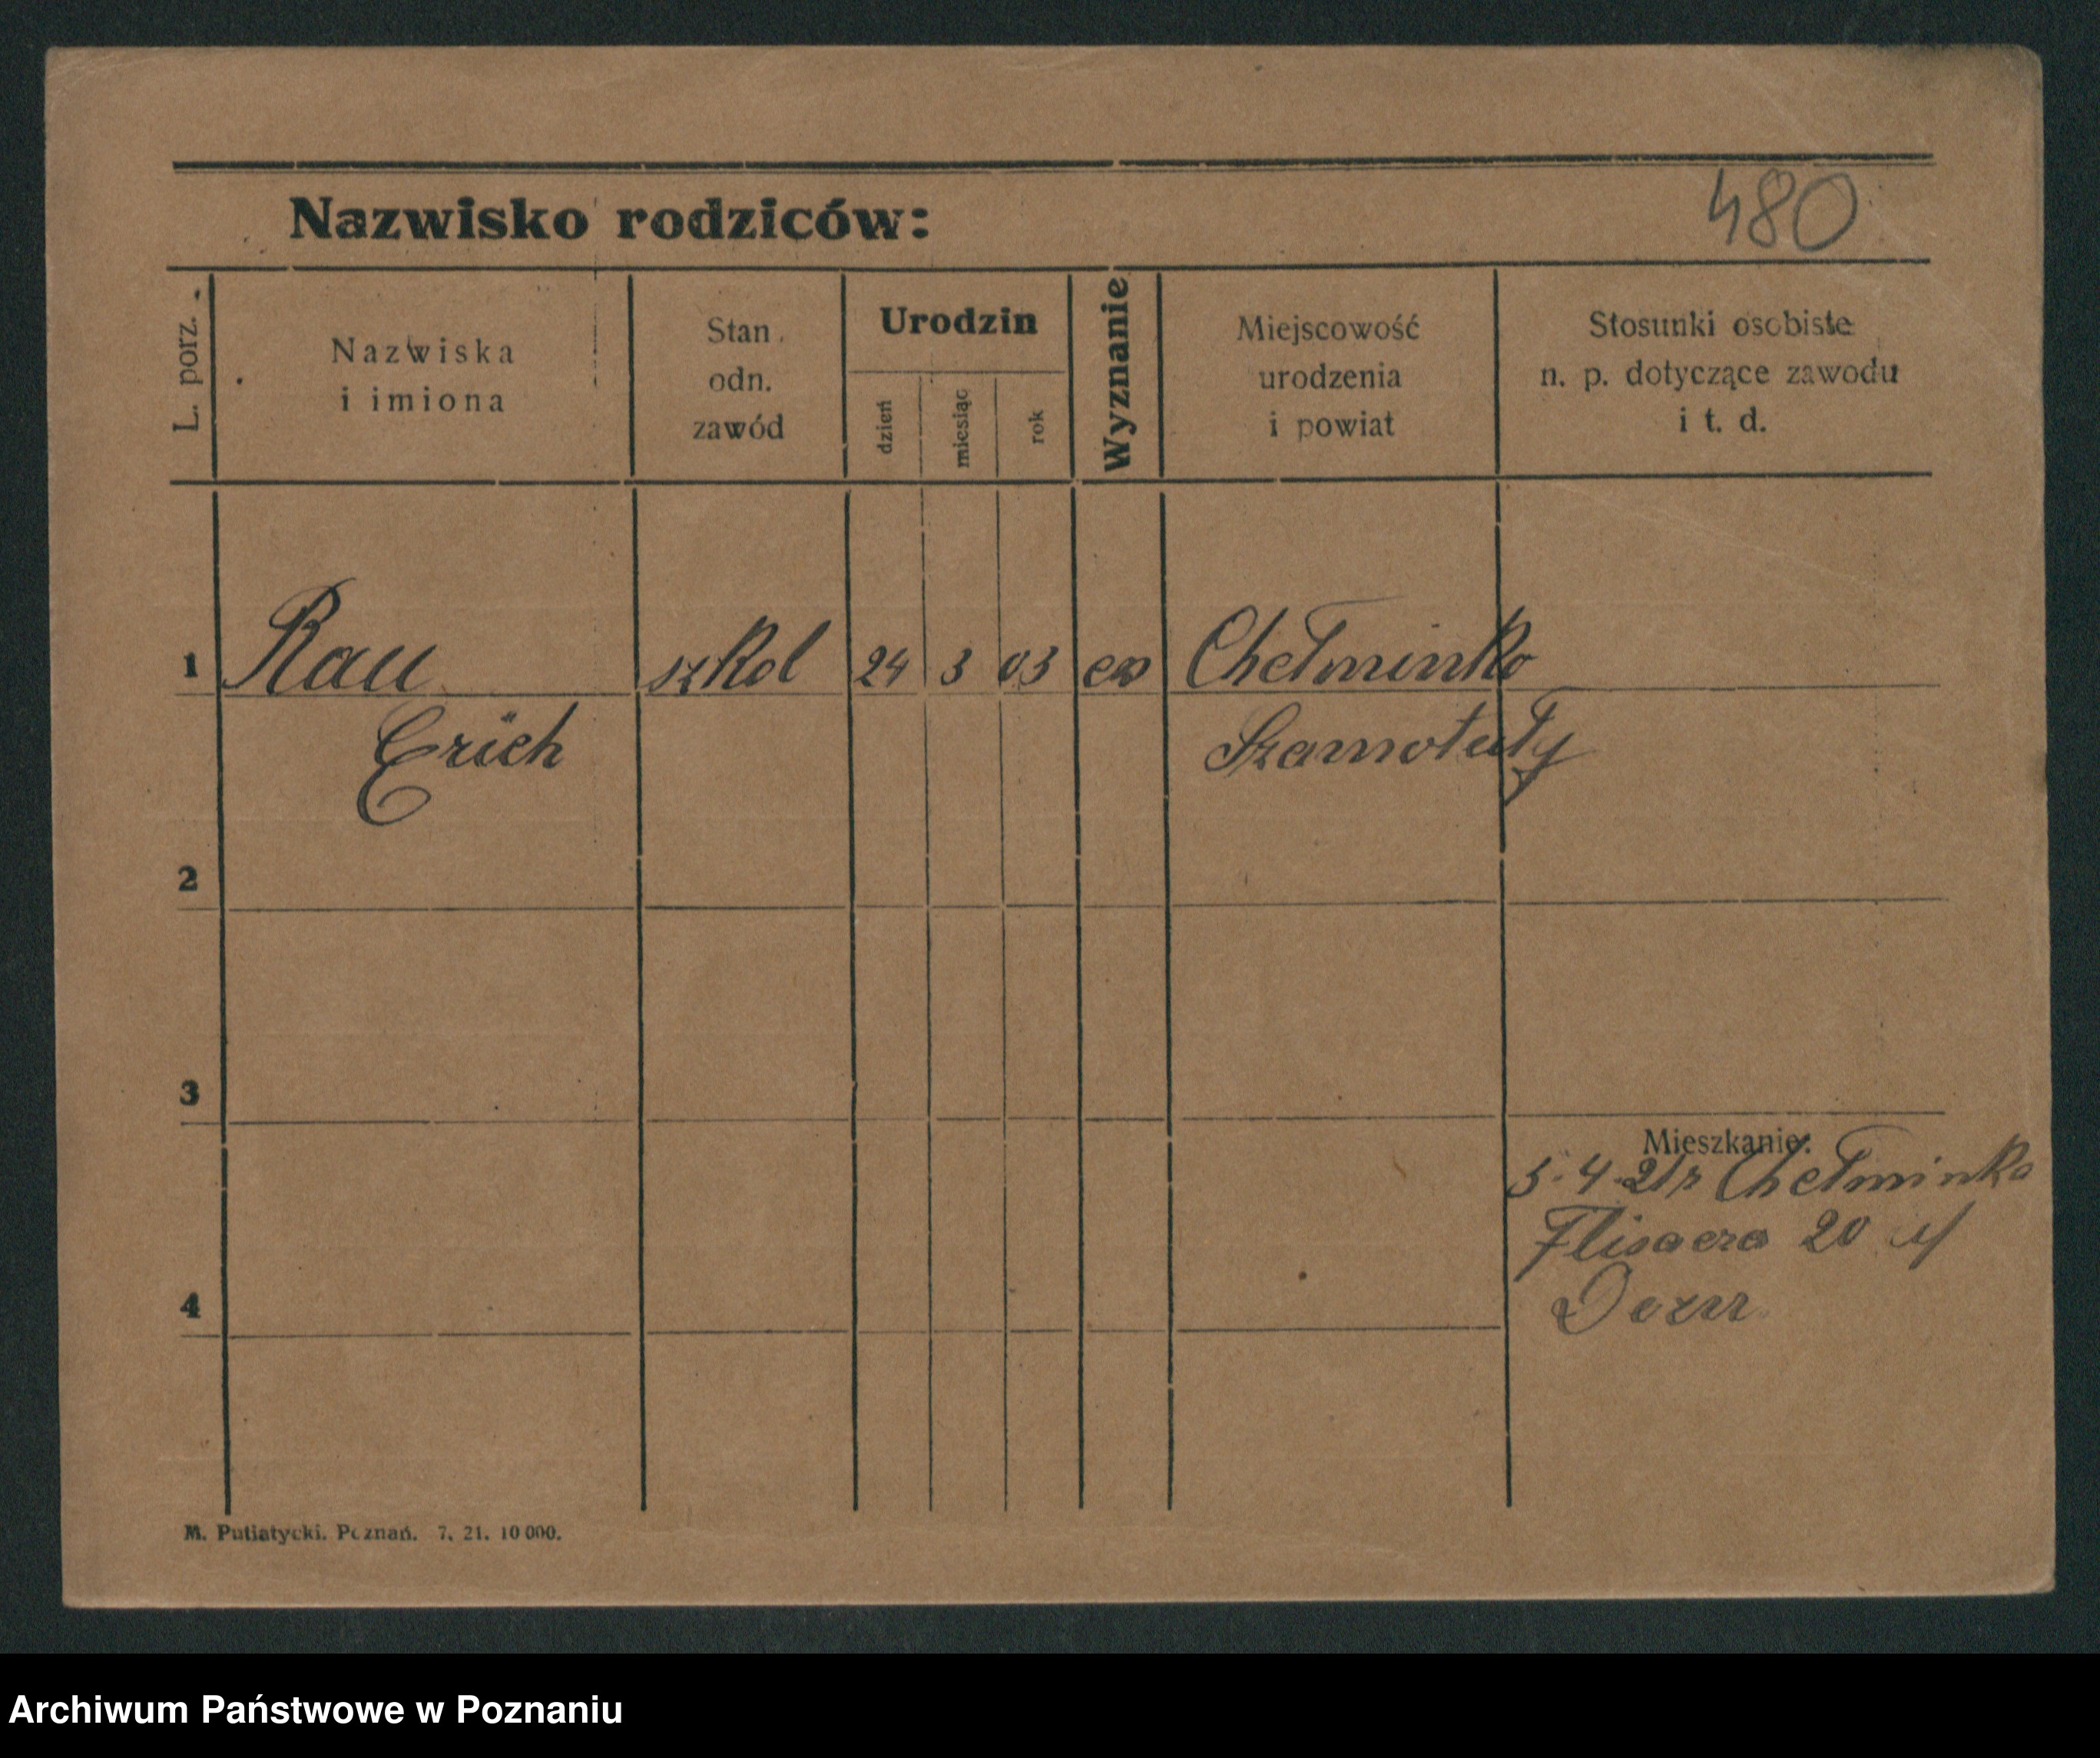 480
Nazwisko rodziców:
L. porz.
Nazwiska
i imiona
Stan
odn.
zawód
Urodzin
dzień
miesiąc
rok
Wyznanie
Miejscowość
urodzenia
i powiat
Stosunki osobiste
n. p. dotyczące zawodu
i t. d.
1 Rau szkol 24 3 03 Chełminko
Erich Szamotuły
2
3
Mieszkanie:
5. 4. 21 z Chełminka
20
4
M. Putiatycki. Poznań. 7. 21. 10 000.
Archiwum Państwowe w Poznaniu